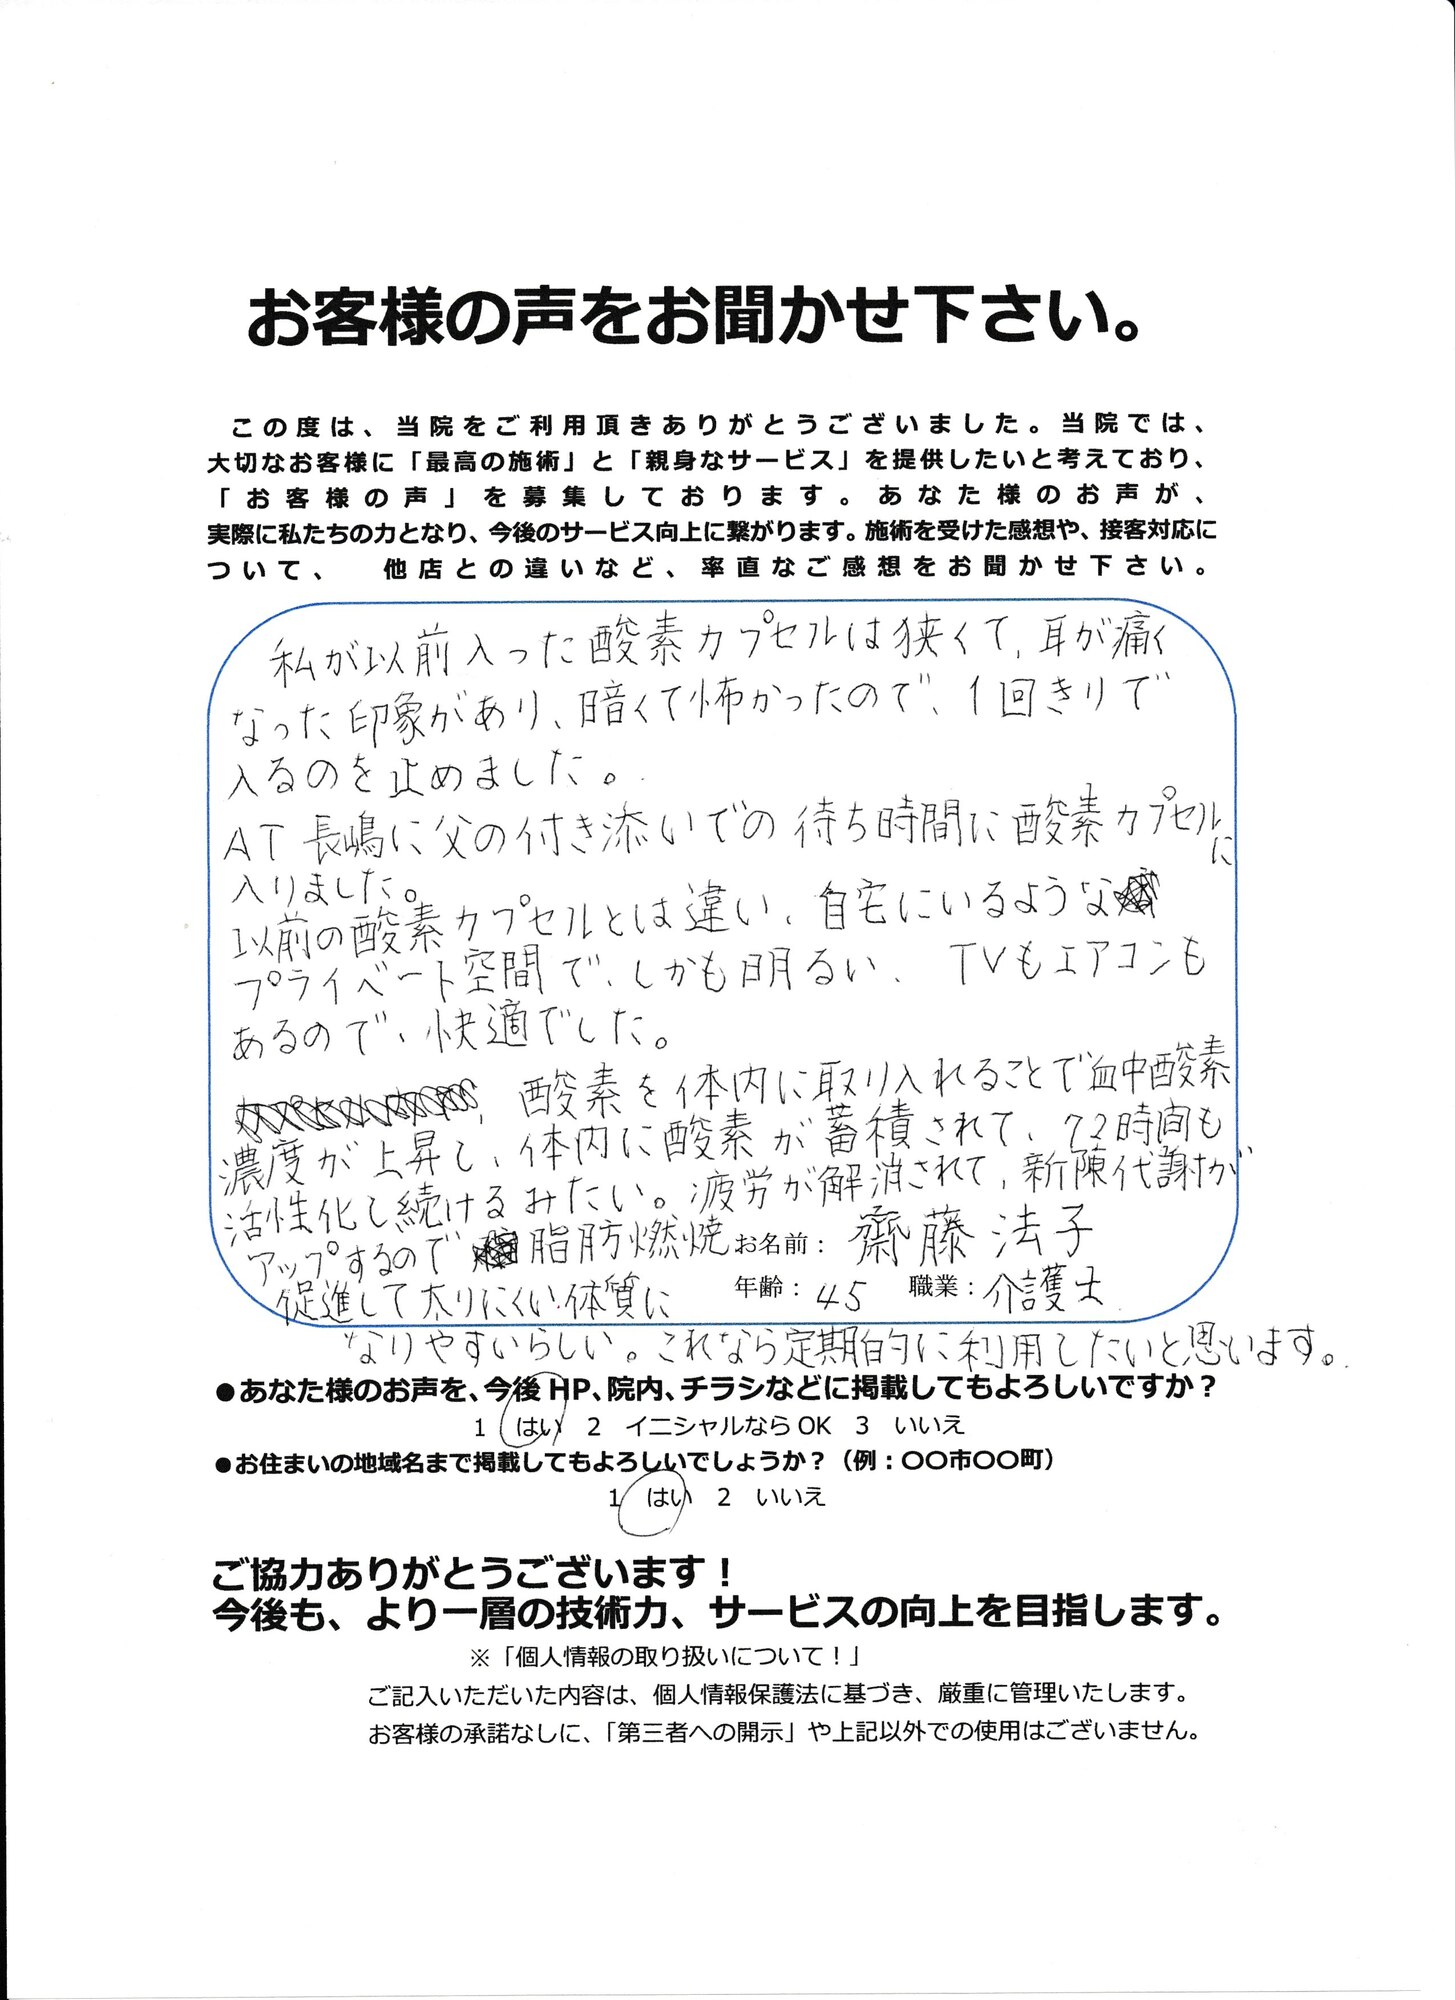 お客様の声をお聞かせ下さい。
この度は、当院をご利用頂きありがとうございました。当院では、
大切なお客様に「最高の施術」と「親身なサービス」を提供したいと考えており、
「お客様の声」を募集しております。あなた様のお声が、
実際に私たちの力となり、今後のサービス向上に繋がります。施術を受けた感想や、接客対応に
ついて、　他店との違いなど、率直なご感想をお聞かせ下さい。
私が以前入った酸素カプセルは狭くて、耳が痛く
なった印象があり、暗くて怖かったので、1回きりで
入るのを止めました。
AT長嶋に父の付き添いでの待ち時間に酸素カプセルに
入りました。
以前の酸素カプセルとは違い、自宅にいるような
プライベート空間で、しかも明るい、TVもエアコンも
あるので、快適でした。
酸素を体内に取り入れることで血中酸素
濃度が上昇し、体内に酸素が蓄積されて、72時間も
活性化し続けるみたい。疲労が解消されて、新陳代謝が
アップするので脂肪燃焼
お名前：齋藤 法子
促進して太りにくい体質に
年齢：45　職業：介護士
なりやすいらしい。これなら定期的に利用したいと思います。
●あなた様のお声を、今後HP、院内、チラシなどに掲載してもよろしいですか？
1　はい　2　イニシャルならOK　3　いいえ
●お住まいの地域名まで掲載してもよろしいでしょうか？（例：〇〇市〇〇町）
1　はい　2　いいえ
ご協力ありがとうございます！
今後も、より一層の技術力、サービスの向上を目指します。
※「個人情報の取り扱いについて！」
ご記入いただいた内容は、個人情報保護法に基づき、厳重に管理いたします。
お客様の承諾なしに、「第三者への開示」や上記以外での使用はございません。